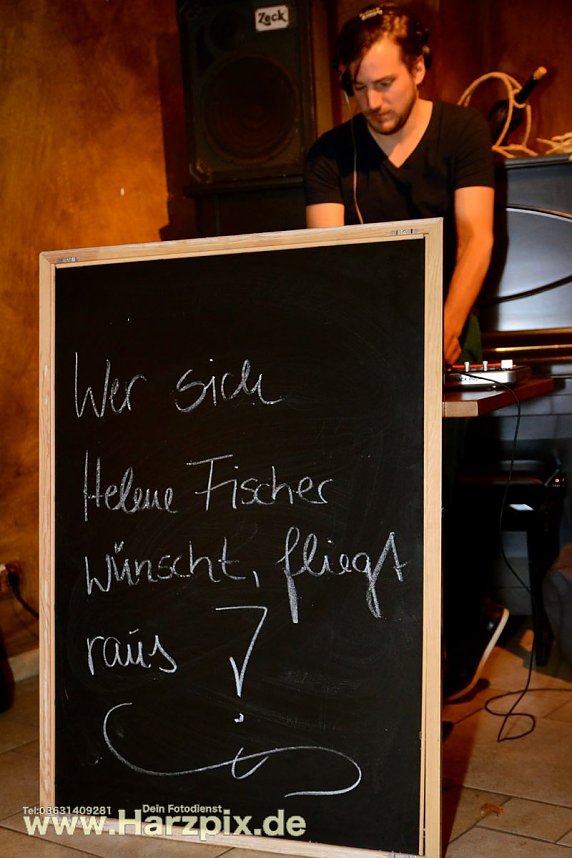 Zeck
Wer sich
Helene Fischer
wünscht, fliegt
raus!
Tel:03631409281 Dein Fotodienst
www.Harzpix.de